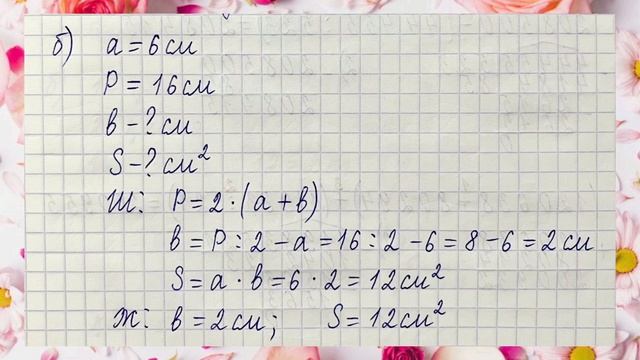 б) a = 6 см
P = 16 см
в - ? см
S - ? см²
Ш: P = 2 · (a + в)
в = P : 2 - a = 16 : 2 - 6 = 8 - 6 = 2 см
S = a · в = 6 · 2 = 12 см²
Ж: в = 2 см; S = 12 см²